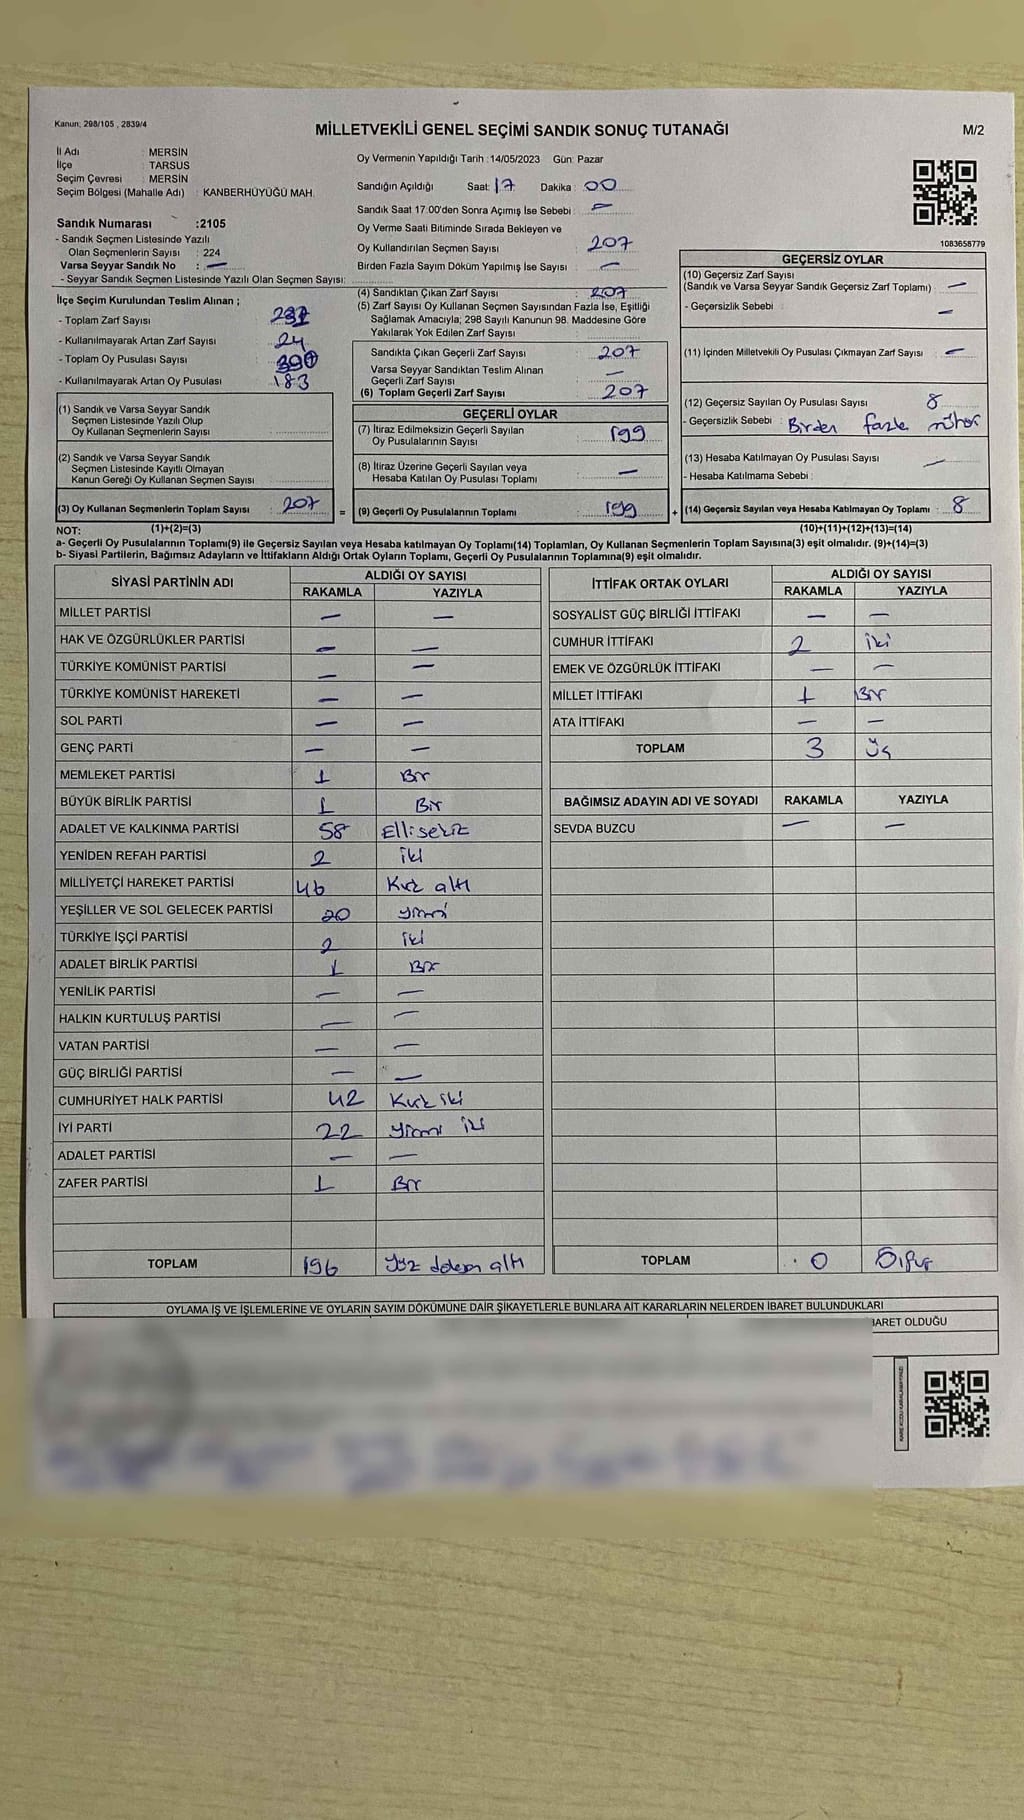 Kanun; 298/105 , 2839/4
MİLLETVEKİLİ GENEL SEÇİMİ SANDIK SONUÇ TUTANAĞI
M/2
İl Adı : MERSİN
İlçe : TARSUS
Seçim Çevresi : MERSİN
Seçim Bölgesi (Mahalle Adı) : KANBERHÜYÜĞÜ MAH.
Sandık Numarası :2105
- Sandık Seçmen Listesinde Yazılı
Olan Seçmenlerin Sayısı : 224
Varsa Seyyar Sandık No : —
- Seyyar Sandık Seçmen Listesinde Yazılı Olan Seçmen Sayısı:
Oy Vermenin Yapıldığı Tarih :14/05/2023 Gün: Pazar
Sandığın Açıldığı Saat: 17 Dakika : 00
Sandık Saat 17:00'den Sonra Açımış İse Sebebi : —
Oy Verme Saati Bitiminde Sırada Bekleyen ve
Oy Kullandırılan Seçmen Sayısı : 207
Birden Fazla Sayım Döküm Yapılmış İse Sayısı : —
1083658779
İlçe Seçim Kurulundan Teslim Alınan ;
- Toplam Zarf Sayısı :
- Kullanılmayarak Artan Zarf Sayısı : 24
- Toplam Oy Pusulası Sayısı :
- Kullanılmayarak Artan Oy Pusulası : 183
(1) Sandık ve Varsa Seyyar Sandık
Seçmen Listesinde Yazılı Olup
Oy Kullanan Seçmenlerin Sayısı :
(2) Sandık ve Varsa Seyyar Sandık
Seçmen Listesinde Kayıtlı Olmayan
Kanun Gereği Oy Kullanan Seçmen Sayısı :
(3) Oy Kullanan Seçmenlerin Toplam Sayısı : 207
(1)+(2)=(3)
(4) Sandıktan Çıkan Zarf Sayısı : 207
(5) Zarf Sayısı Oy Kullanan Seçmen Sayısından Fazla İse, Eşitliği
Sağlamak Amacıyla; 298 Sayılı Kanunun 98. Maddesine Göre
Yakılarak Yok Edilen Zarf Sayısı :
Sandıkta Çıkan Geçerli Zarf Sayısı : 207
Varsa Seyyar Sandıktan Teslim Alınan
Geçerli Zarf Sayısı : —
(6) Toplam Geçerli Zarf Sayısı : 207
GEÇERLİ OYLAR
(7) İtiraz Edilmeksizin Geçerli Sayılan
Oy Pusulalarının Sayısı : 199
(8) İtiraz Üzerine Geçerli Sayılan veya
Hesaba Katılan Oy Pusulası Toplamı : —
= (9) Geçerli Oy Pusulalarının Toplamı : 199
GEÇERSİZ OYLAR
(10) Geçersiz Zarf Sayısı
(Sandık ve Varsa Seyyar Sandık Geçersiz Zarf Toplamı) : —
- Geçersizlik Sebebi : —
(11) İçinden Milletvekili Oy Pusulası Çıkmayan Zarf Sayısı : —
(12) Geçersiz Sayılan Oy Pusulası Sayısı : 8
- Geçersizlik Sebebi : Birden fazla mühür
(13) Hesaba Katılmayan Oy Pusulası Sayısı : —
- Hesaba Katılmama Sebebi :
+ (14) Geçersiz Sayılan veya Hesaba Katılmayan Oy Toplamı : 8
(10)+(11)+(12)+(13)=(14)
NOT:
a- Geçerli Oy Pusulalarının Toplamı(9) ile Geçersiz Sayılan veya Hesaba katılmayan Oy Toplamı(14) Toplamları, Oy Kullanan Seçmenlerin Toplam Sayısına(3) eşit olmalıdır. (9)+(14)=(3)
b- Siyasi Partilerin, Bağımsız Adayların ve İttifakların Aldığı Ortak Oyların Toplamı, Geçerli Oy Pusulalarının Toplamına(9) eşit olmalıdır.
SİYASİ PARTİNİN ADI ALDIĞI OY SAYISI
RAKAMLA YAZIYLA
MİLLET PARTİSİ — —
HAK VE ÖZGÜRLÜKLER PARTİSİ — —
TÜRKİYE KOMÜNİST PARTİSİ — —
TÜRKİYE KOMÜNİST HAREKETİ — —
SOL PARTİ — —
GENÇ PARTİ — —
MEMLEKET PARTİSİ 1 Bir
BÜYÜK BİRLİK PARTİSİ 1 Bir
ADALET VE KALKINMA PARTİSİ 58 Elli sekiz
YENİDEN REFAH PARTİSİ 2 iki
MİLLİYETÇİ HAREKET PARTİSİ 46 Kırk altı
YEŞİLLER VE SOL GELECEK PARTİSİ 20 yirmi
TÜRKİYE İŞÇİ PARTİSİ 2 iki
ADALET BİRLİK PARTİSİ 1 Bir
YENİLİK PARTİSİ — —
HALKIN KURTULUŞ PARTİSİ — —
VATAN PARTİSİ — —
GÜÇ BİRLİĞİ PARTİSİ — —
CUMHURİYET HALK PARTİSİ 42 Kırk iki
İYİ PARTİ 22 yirmi iki
ADALET PARTİSİ — —
ZAFER PARTİSİ 1 Bir
TOPLAM 196 Yüz doksan altı
İTTİFAK ORTAK OYLARI ALDIĞI OY SAYISI
RAKAMLA YAZIYLA
SOSYALİST GÜÇ BİRLİĞİ İTTİFAKI — —
CUMHUR İTTİFAKI 2 iki
EMEK VE ÖZGÜRLÜK İTTİFAKI — —
MİLLET İTTİFAKI 1 Bir
ATA İTTİFAKI — —
TOPLAM 3 Üç
BAĞIMSIZ ADAYIN ADI VE SOYADI RAKAMLA YAZIYLA
SEVDA BUZCU — —
TOPLAM 0 Sıfır
OYLAMA İŞ VE İŞLEMLERİNE VE OYLARIN SAYIM DÖKÜMÜNE DAİR ŞİKAYETLERLE BUNLARA AİT KARARLARIN NELERDEN İBARET BULUNDUKLARI
BARET OLDUĞU